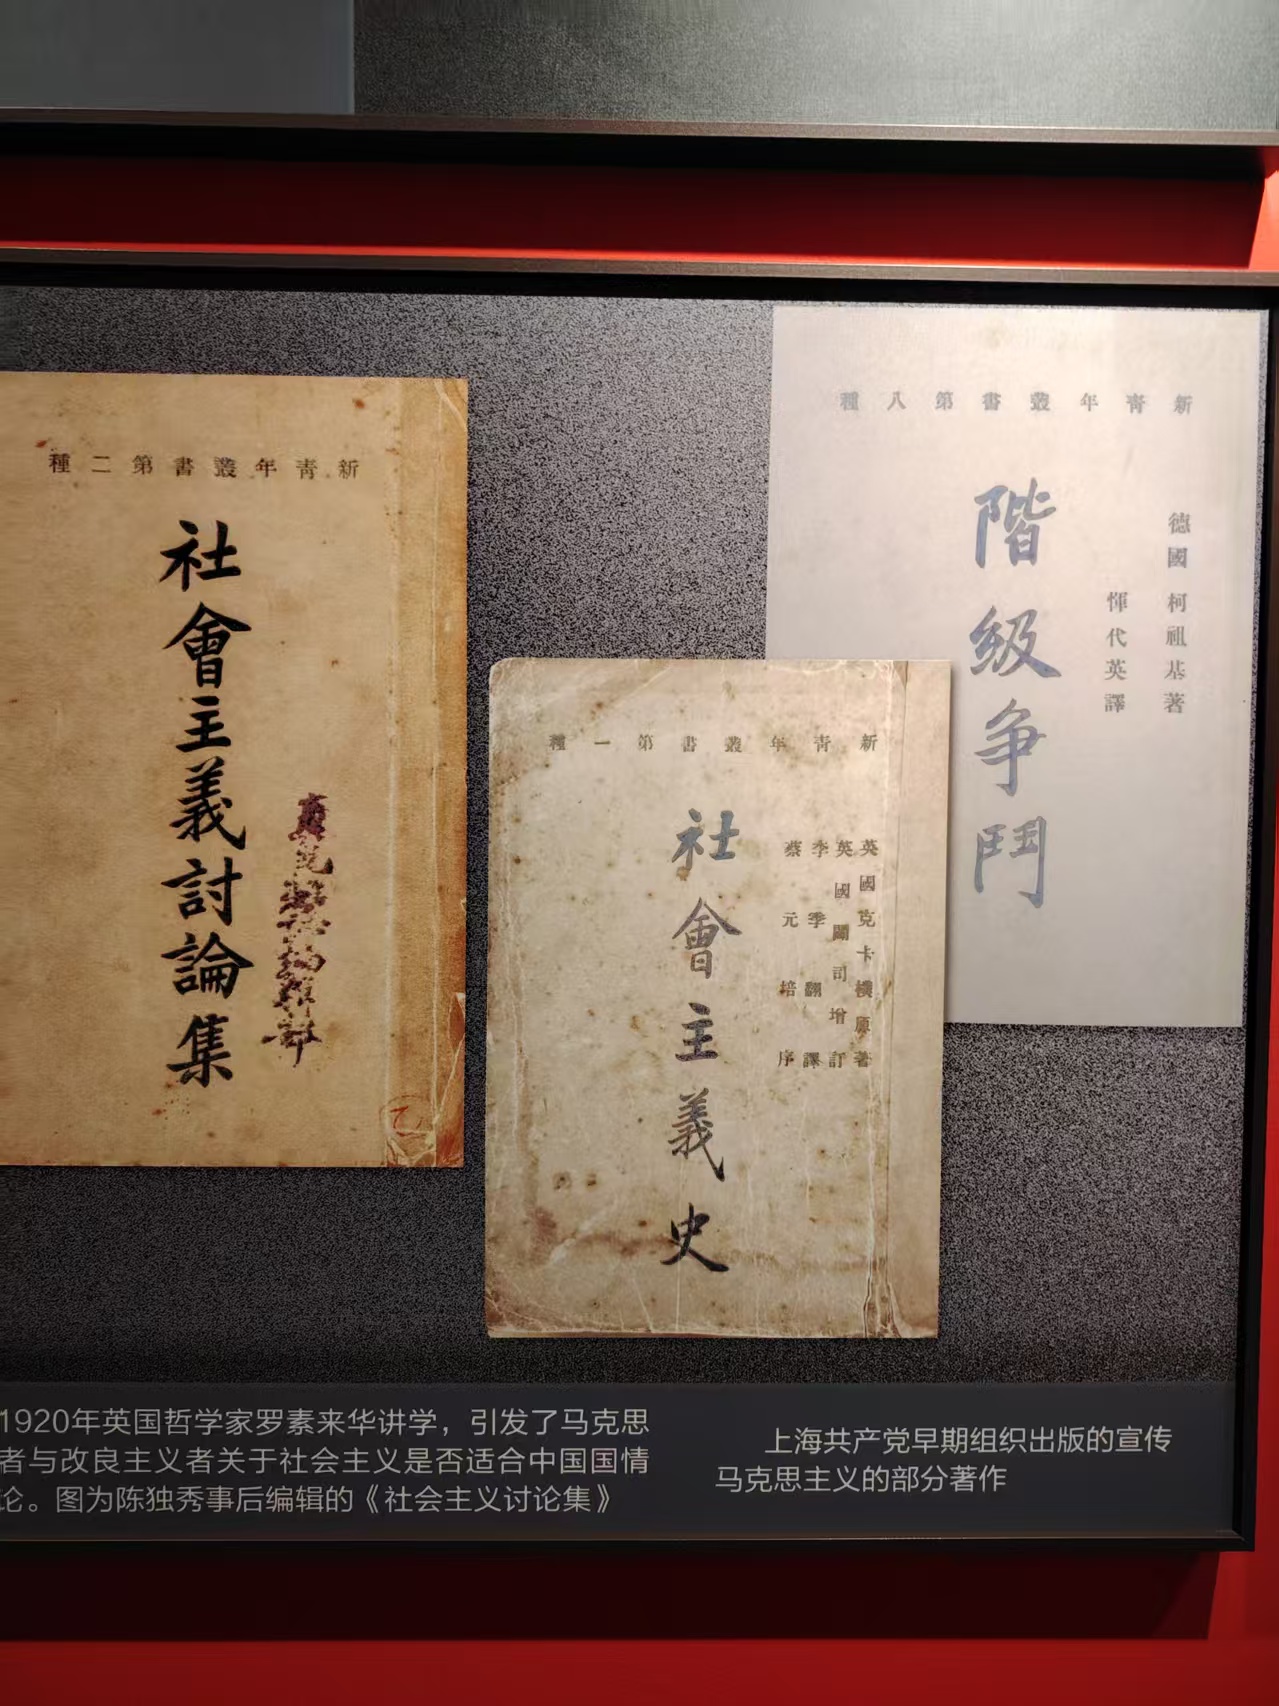 新青年叢書第二種
社會主義討論集
新青年叢書第八種
德國 柯祖基著
惲代英譯
階級争鬥
新青年叢書第一種
英國克卡樸原著
英國闢司增訂
李季翻譯
蔡元培序
社會主義史
1920年英国哲学家罗素来华讲学，引发了马克思
者与改良主义者关于社会主义是否适合中国国情
论。图为陈独秀事后编辑的《社会主义讨论集》
上海共产党早期组织出版的宣传
马克思主义的部分著作